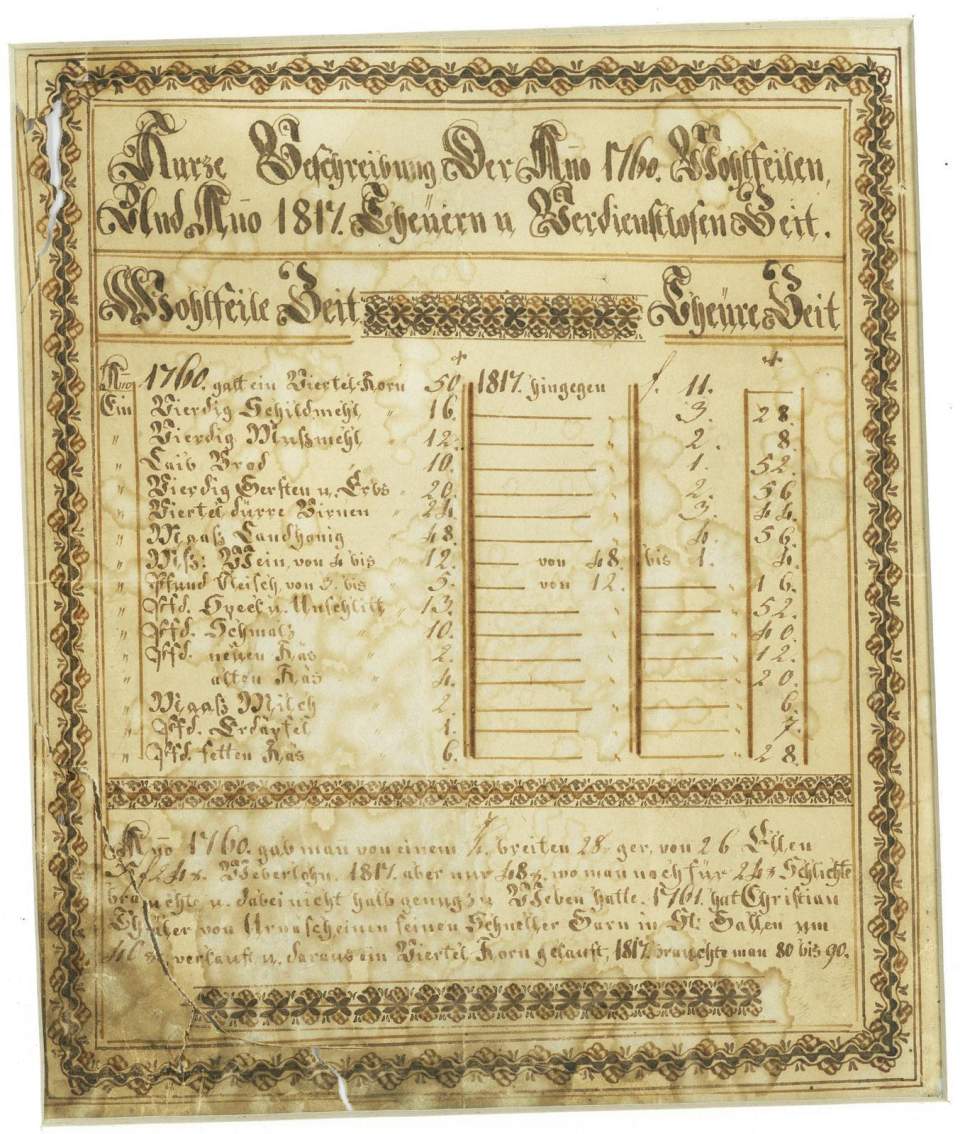 Kurze Beschreibung Der Año 1760. Wohlfeilen,
Und Año 1817. Theüern u Verdienstlosen Zeit.
Wohlfeile Zeit Theüre Zeit
Año 1760. galt ein Viertel Korn 50. 1817. hingegen f. 11.
Ein Vierdig Schildmehl „ 16. 3. 28.
„ Vierdig Mußmehl „ 12. 2. 8.
„ Laib Brod „ 10. 1. 52.
„ Vierdig Gersten u. Erbs „ 20. 2. 56
„ Viertel dürre Birnen „ 24. 3. 44.
„ Maaß Landhonig 48. 4. 56.
„ Mß: Wein, von 4 bis 12. von 48. bis 1. 4.
„ Pfund fleisch, von 3. bis „ 5. von 12. 16.
„ Pfd. Speck u. Unschlitt „ 13. 52.
„ Pfd. Schmalz „ 10. 40.
„ Pfd. neüen Käs „ 2. 12.
alten Käs „ 4. 20.
„ Maaß Milch 2. 6.
„ Pfd. Erdäpfel 1. 7.
„ Pfd. fetten Käs 6. 28.
Año 1760. gab man von einem breiten 28 ger. von 26 Ellen
f 24 x. Weberlohn, 1817. aber nur 48 x, wo man noch für 24 x Schlichte
brauchte u. dabei nicht halb genug zu Weben hatte. 1761. hat Christian
von Urnäsch einen feinen Schneller Garn in St: Gallen um
x. verkauft u. daraus ein Viertel Korn gekauft, 1817. brauchte man 80 bis 90.